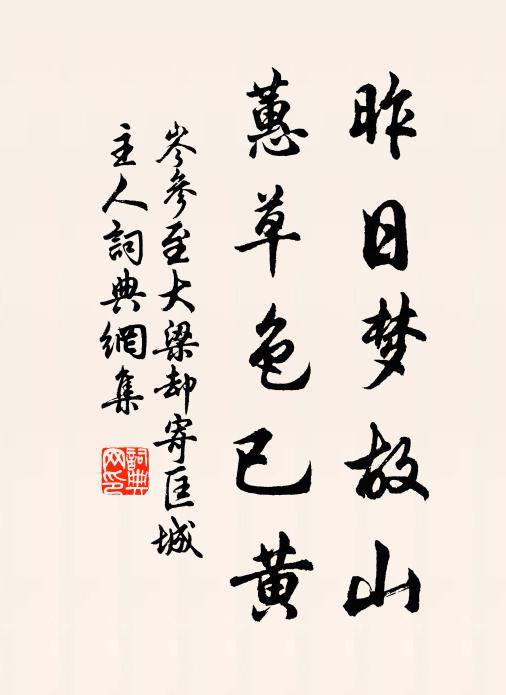 昨日梦故山
蕙草色已黄
岑參至大梁却寄匡城
主人詞典網集
詞典网印